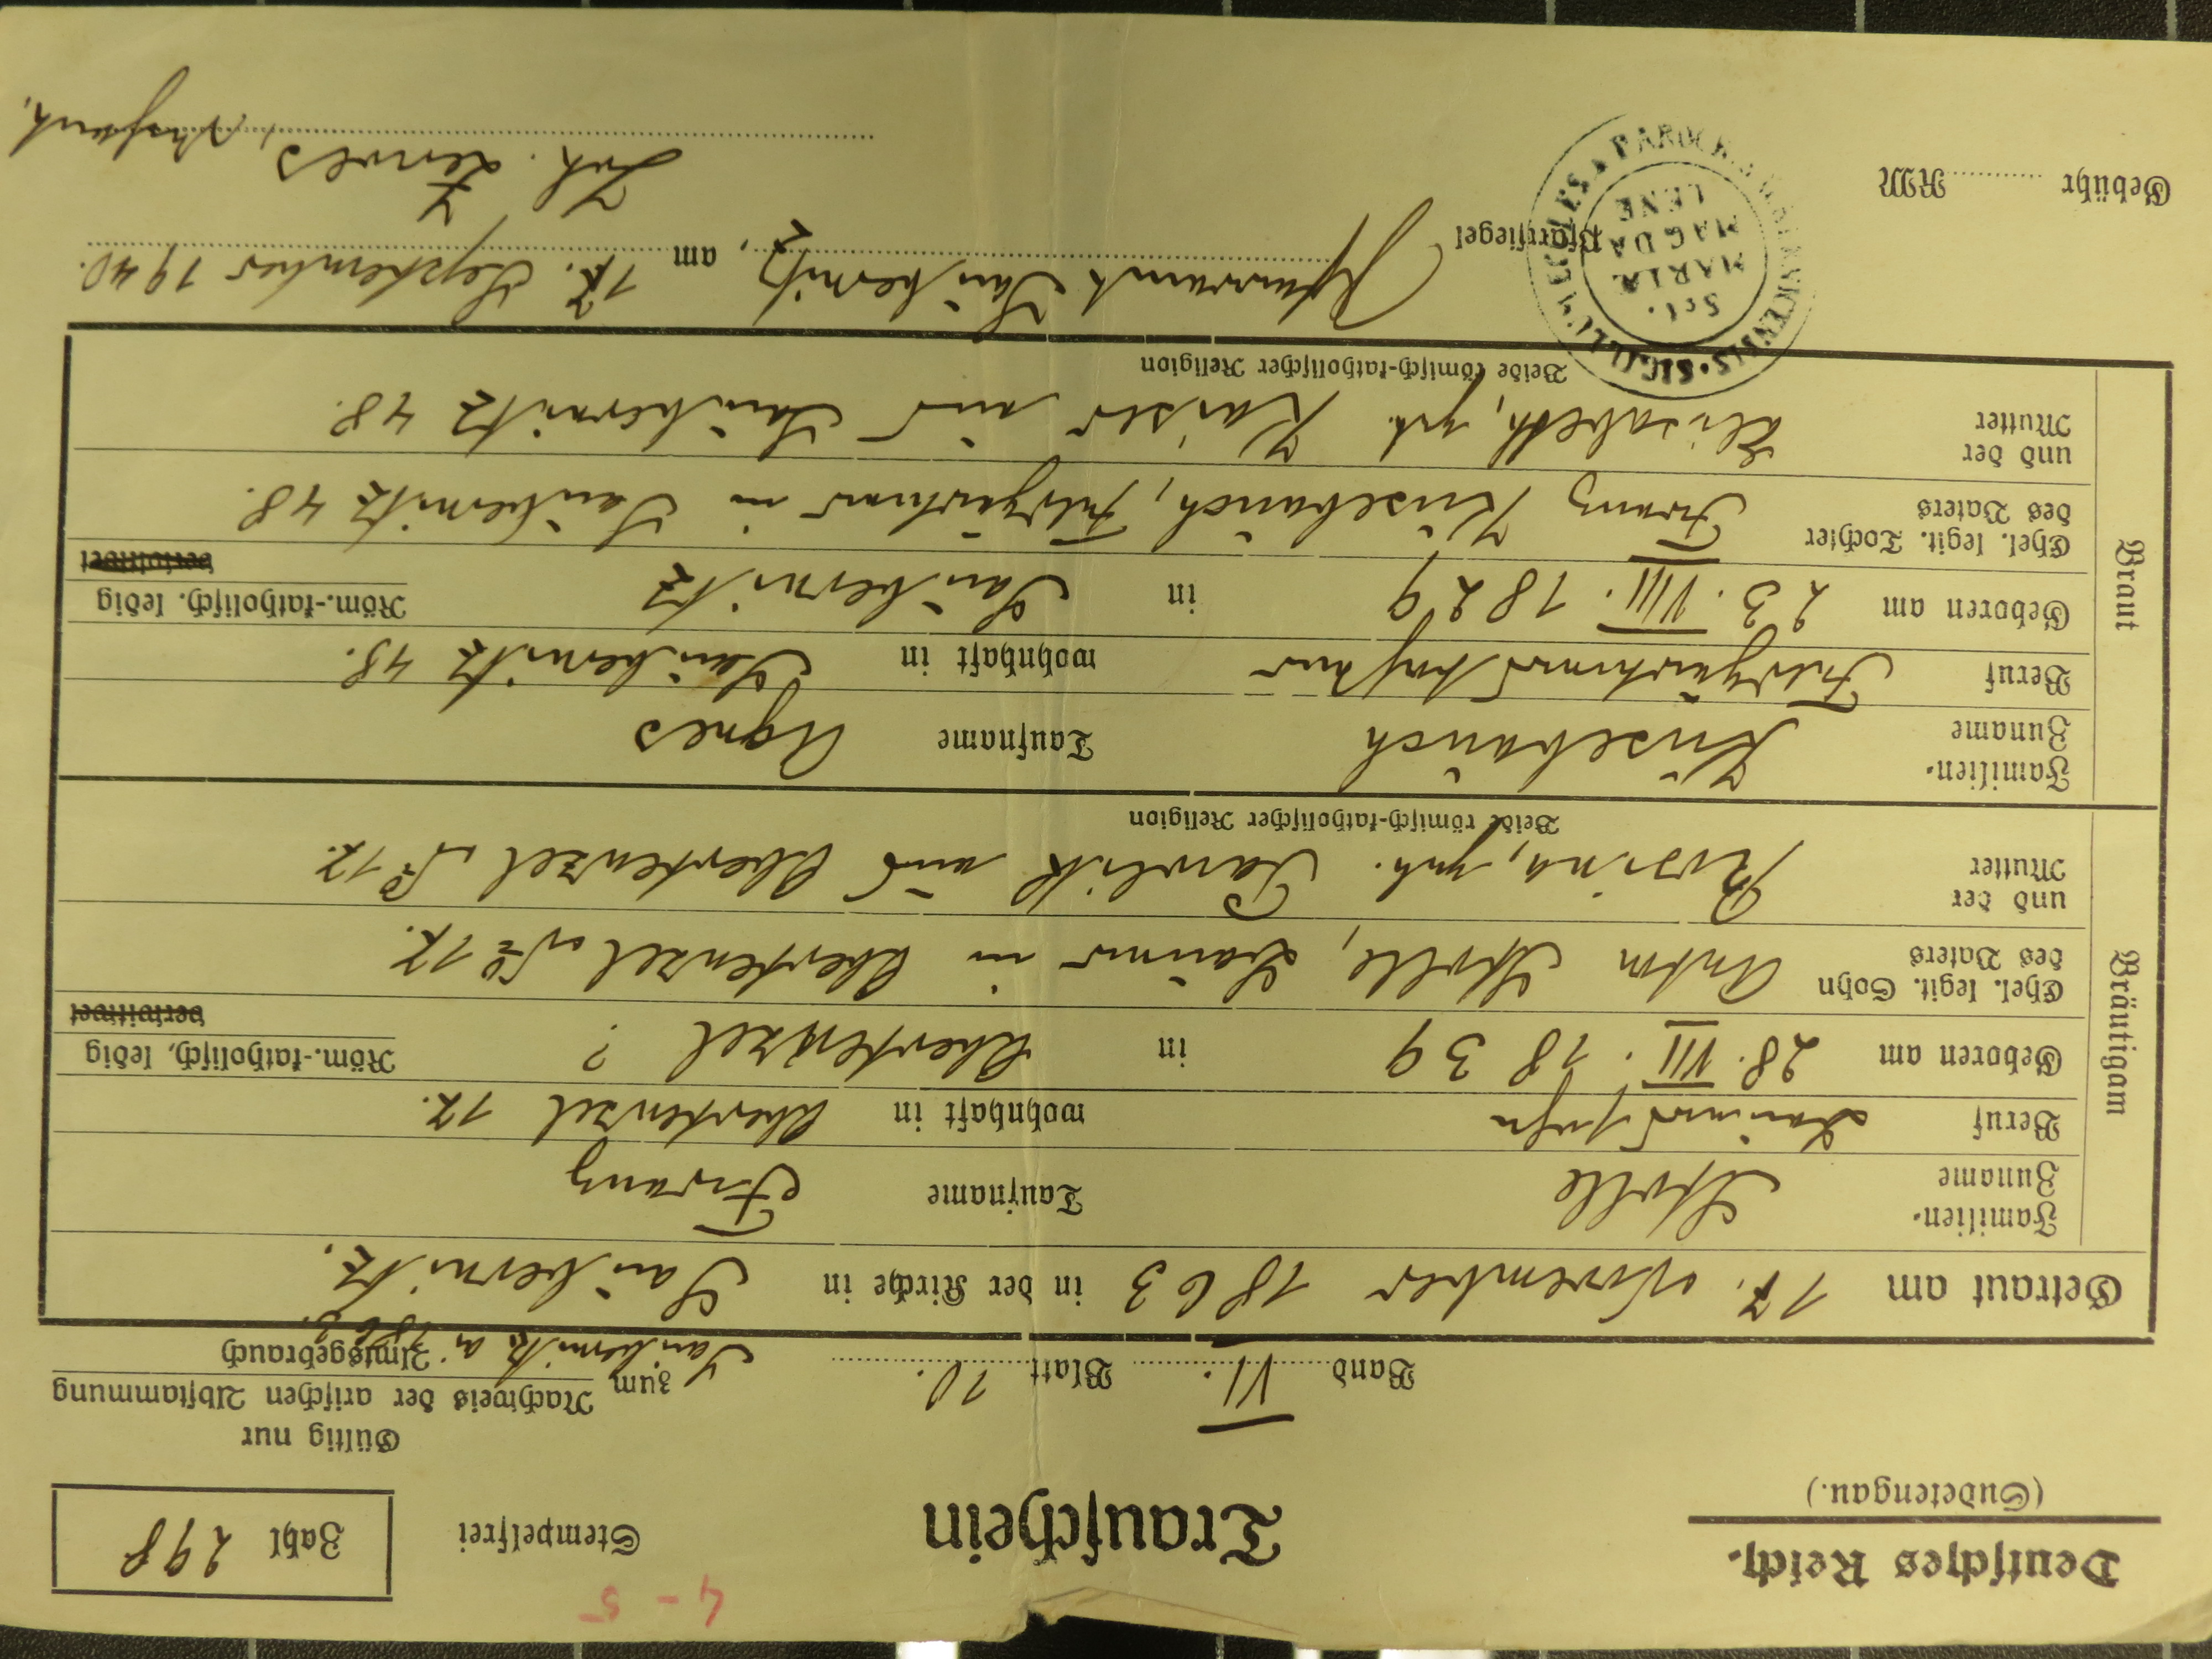 4 - 5
Deutsches Reich.
(Sudetengau.)
Trauschein
Stempelfrei
Zahl 298
Gültig nur
zum Nachweis der arischen Abstammung
Amtsgebrauch
Band VI. Blatt 10. Saubernitz
Getraut am 17. November 1863 in der Kirche in Saubernitz.
Bräutigam
Familien-
Zuname Stolle Taufname Franz
Beruf Bauerssohn wohnhaft in Oberfenzel 12.
Geboren am 28. VII. 1839 in Oberfenzel ? Röm.-katholisch, ledig
verwitwet
Ehel. legit. Sohn
des Vaters Anton Stolle, Bauer in Oberfenzel No 12.
und der
Mutter Rosina, geb. Pawolik aus Oberfenzel No 12.
Beide römisch-katholischer Religion
Braut
Familien-
Zuname Küsebauch Taufname Agnes
Beruf Feldgärtnerstochter wohnhaft in Saubernitz 48.
Geboren am 23. VIII. 1829 in Saubernitz Röm.-katholisch, ledig
verwitwet
Ehel. legit. Tochter
des Vaters Franz Küsebauch, Feldgärtner in Saubernitz 48.
und der
Mutter Elisabeth, geb. Kaiser aus Saubernitz 48.
Beide römisch-katholischer Religion
Sct.
MARIA
MAGDA
LENE
Pfarrsiegel
Pfarramt Saubernitz, am 12. September 1940.
Gebühr RM